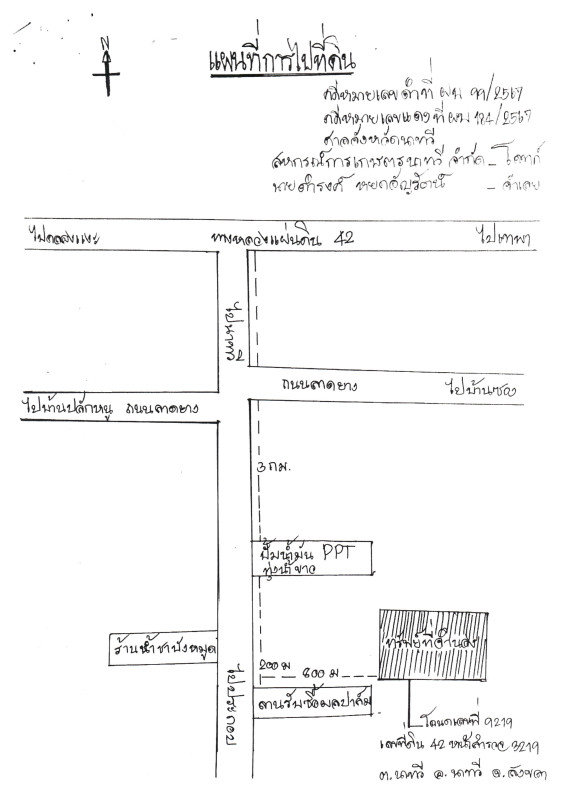 N
แผนที่การไปที่ดิน
คดีหมายเลขดำที่ ผบ 99/2567
คดีหมายเลขแดงที่ ผบ 124/2567
ศาลจังหวัดนาทวี
สหกรณ์การเกษตรนาทวี จำกัด - โจทก์
นายดำรงค์ - จำเลย
ไปคลองแงะ ทางหลวงแผ่นดิน 42 ไปเทพา
ไปนาทวี
ถนนลาดยาง ไปบ้านซอง
ไปบ้านปลักหนู ถนนลาดยาง
3 กม.
ปั๊มน้ำมัน PPT
ทุ่งน้ำขาว
ร้านน้ำชาบังหมูด
ทรัพย์ที่จำนอง
200 ม 800 ม
ไปประกอบ
ลานรับซื้อผลปาล์ม
โฉนดเลขที่ 9219
เลขที่ดิน 42 หน้าสำรวจ 3219
ต.นาทวี อ.นาทวี จ.สงขลา